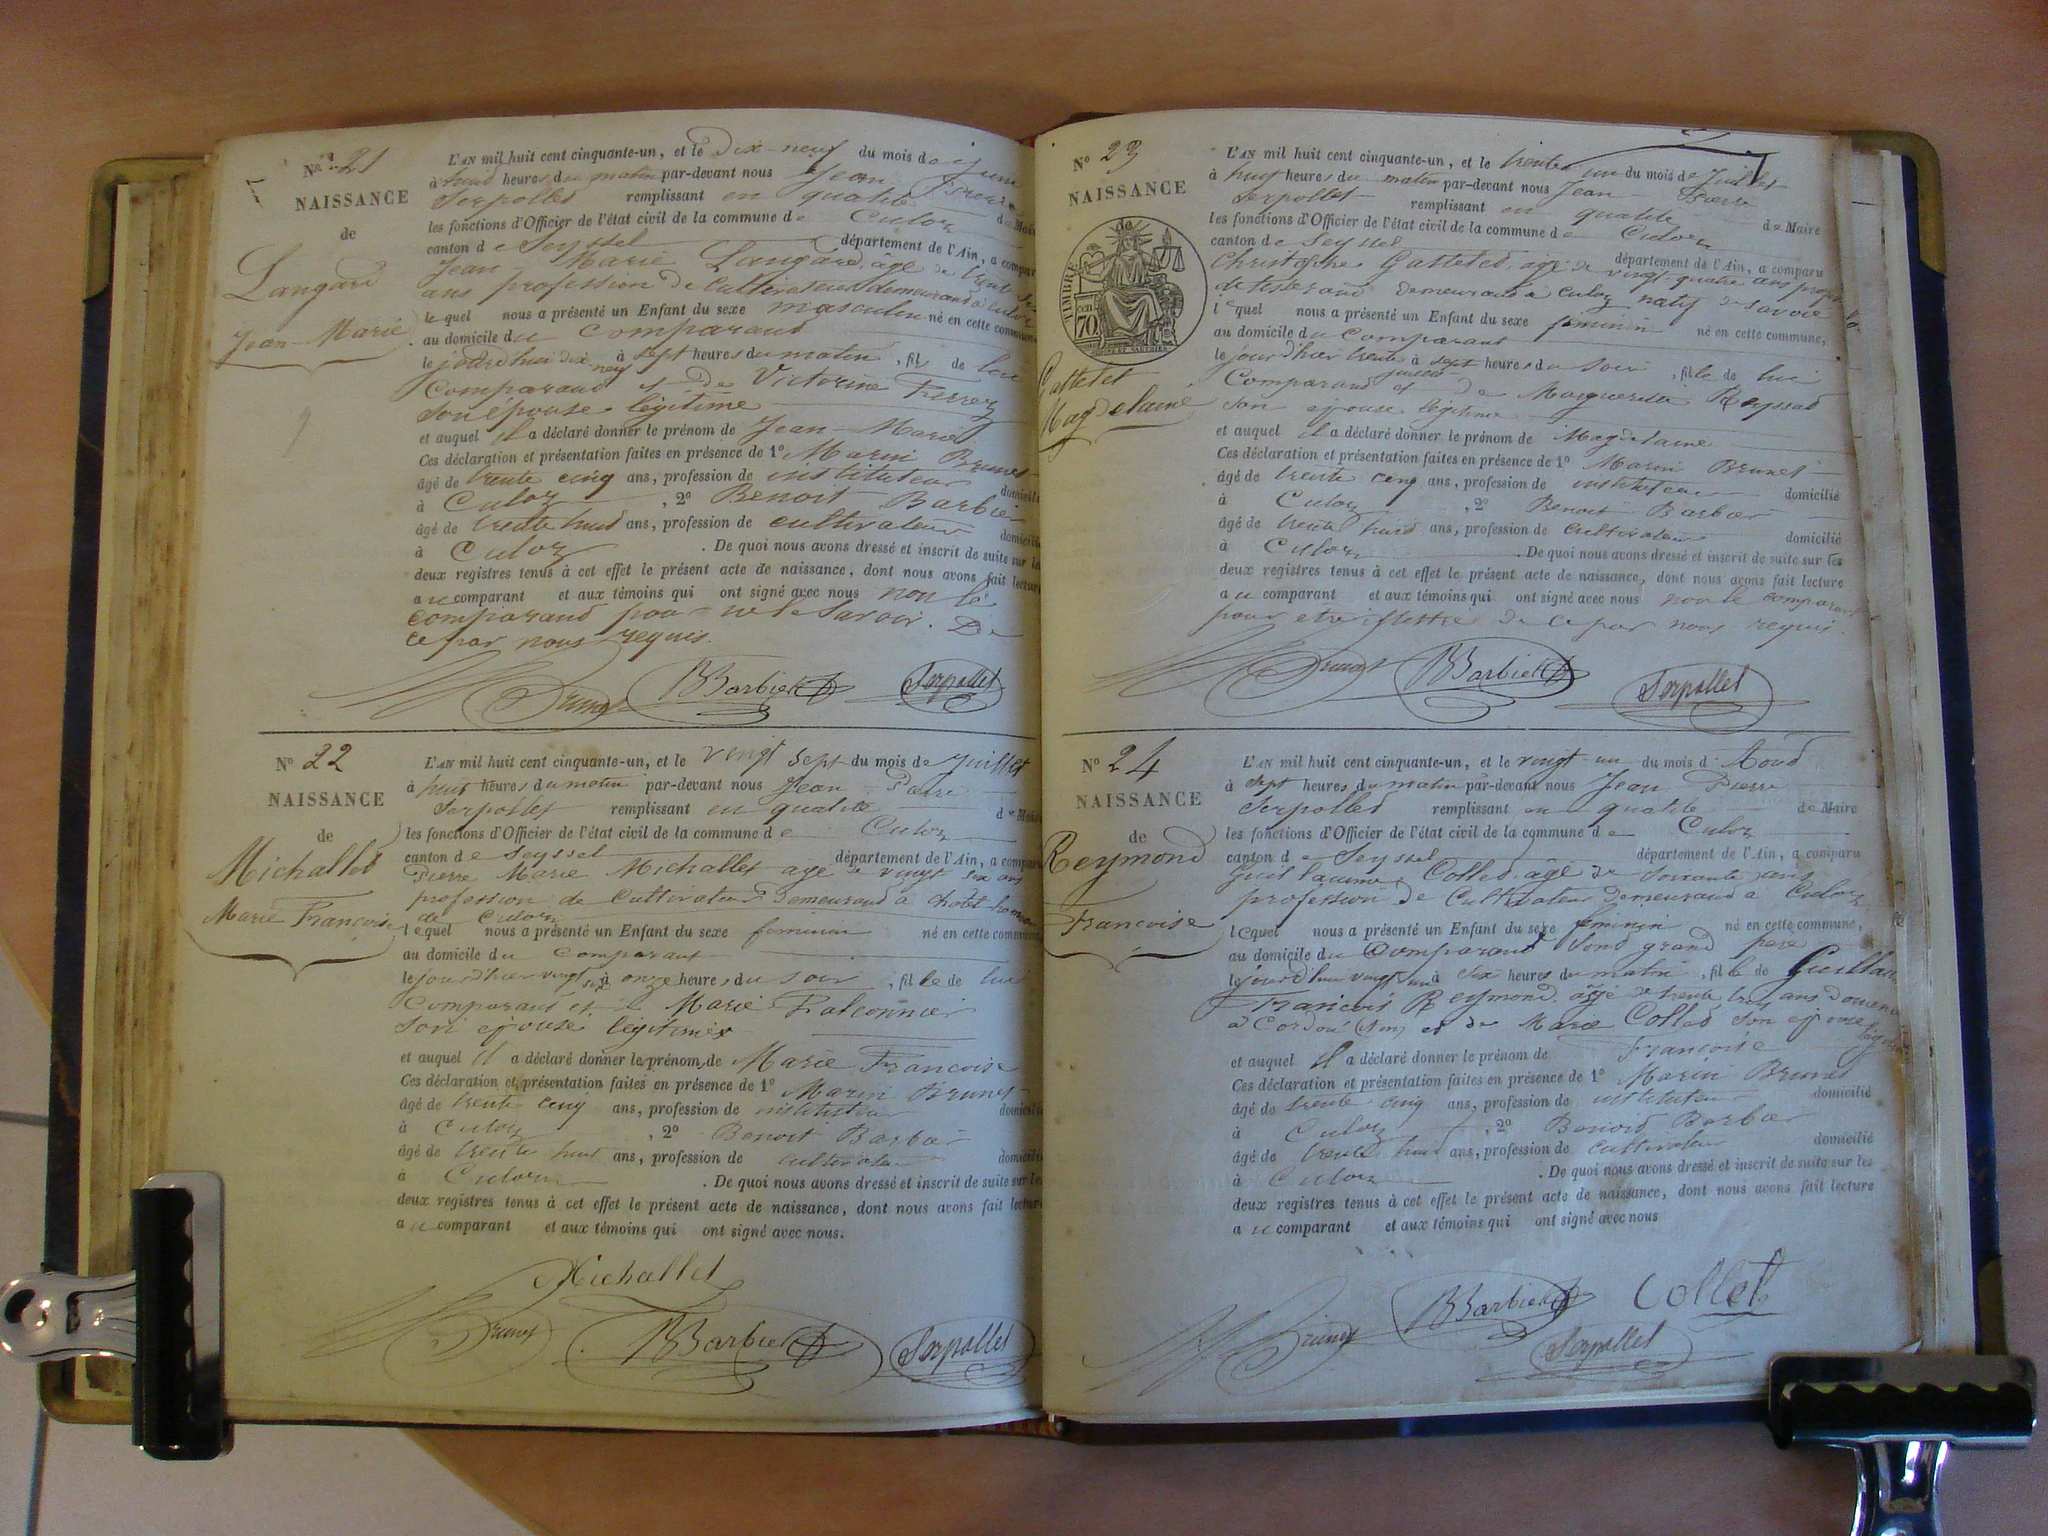 No. 21
NAISSANCE
de
Langard
Jean-Marie
L'AN mil huit cent cinquante-un, et le Dix-neuf du mois de juin
à huit heures du matin par-devant nous Jean Pierre
Serpollet remplissant en qualité de Maire
les fonctions d'Officier de l'état civil de la commune de Culoz
canton de Seyssel département de l'Ain, a comparu
Jean Marie Langard, âgé de
ans profession de Cultivateur demeurant à Culoz
lequel nous a présenté un Enfant du sexe masculin né en cette commune
au domicile du comparant
le jourdhui dix neuf à sept heures du matin, fils de lui
Comparant et de Victorine
son épouse légitime
et auquel il a déclaré donner le prénom de Jean-Marie
Ces déclaration et présentation faites en présence de 1º Marin Brunet
âgé de trente cinq ans, profession de instituteur domicilié
à Culoz, 2º Benoit Barbier
âgé de trente huit ans, profession de cultivateur domicilié
à Culoz. De quoi nous avons dressé et inscrit de suite sur les
deux registres tenus à cet effet le présent acte de naissance, dont nous avons fait lecture
au comparant et aux témoins qui ont signé avec nous non le
comparant pour ne le savoir. De
ce par nous requis.
Brunet BBarbier Serpollet
No 22
NAISSANCE
de
Michallet
Marie Françoise
L'AN mil huit cent cinquante-un, et le vingt sept du mois de juillet
à huit heures du matin par-devant nous Jean Pierre
Serpollet remplissant en qualité de Maire
les fonctions d'Officier de l'état civil de la commune de Culoz
canton de Seyssel département de l'Ain, a comparu
Pierre Marie Michallet âgé de vingt six ans
profession de Cultivateur demeurant à
de Culoz
lequel nous a présenté un Enfant du sexe feminin né en cette commune
au domicile du comparant
le jourd'hier vingt six à onze heures du soir, fille de lui
Comparant et de Marie Falconnier
son epouse légitime
et auquel il a déclaré donner le prénom de Marie Francoise
Ces déclaration et présentation faites en présence de 1º Marin Brunet
âgé de trente cinq ans, profession de instituteur domicilié
à Culoz, 2º Benoit Barbier
âgé de trente huit ans, profession de cultivateur domicilié
à Culoz. De quoi nous avons dressé et inscrit de suite sur les
deux registres tenus à cet effet le présent acte de naissance, dont nous avons fait lecture
au comparant et aux témoins qui ont signé avec nous.
Michallet
Brunet BBarbier Serpollet
No 23
NAISSANCE
de
TIMBRE
70
Gattelet
Magdelaine
L'AN mil huit cent cinquante-un, et le trente un du mois de Juillet
à huit heures du matin par-devant nous Jean Pierre
Serpollet remplissant en qualité de Maire
les fonctions d'Officier de l'état civil de la commune de Culoz
canton de Seyssel département de l'Ain, a comparu
Christophe Gattelet, âgé de vingt quatre ans profession
de tisserand demeurant à Culoz natif de savoie
lequel nous a présenté un Enfant du sexe feminin né en cette commune,
au domicile du Comparant
le jour d'hier trente juillet à sept heures du soir, fille de lui
Comparant et de Marguerite
son epouse légitime
et auquel il a déclaré donner le prénom de Magdelaine
Ces déclaration et présentation faites en présence de 1º Marin Brunet
âgé de trente cinq ans, profession de instituteur domicilié
à Culoz, 2º Benoit Barbier
âgé de trente huit ans, profession de Cultivateur domicilié
à Culoz. De quoi nous avons dressé et inscrit de suite sur les
deux registres tenus à cet effet le présent acte de naissance, dont nous avons fait lecture
au comparant et aux témoins qui ont signé avec nous non le comparant
pour etre illettré de ce par nous requis.
Brunet BBarbier Serpollet
No 24
NAISSANCE
de
Reymond
Francoise
L'AN mil huit cent cinquante-un, et le vingt-un du mois d'Aout
à sept heures du matin par-devant nous Jean Pierre
Serpollet remplissant en qualité de Maire
les fonctions d'Officier de l'état civil de la commune de Culoz
canton de Seyssel département de l'Ain, a comparu
Collet, âgé de soixante ans
profession de Cultivateur demeurant à Culoz
lequel nous a présenté un Enfant du sexe feminin né en cette commune,
au domicile du Comparant son grand pere
le jourd'hui vingt un à six heures du matin, fille de
Francois Reymond, âgé de trente trois ans
à et de Marie Collet son epouse
et auquel il a déclaré donner le prénom de Francoise
Ces déclaration et présentation faites en présence de 1º Marin Brunet
âgé de trente cinq ans, profession de instituteur domicilié
à Culoz, 2º Benoit Barbier
âgé de trente huit ans, profession de cultivateur domicilié
à Culoz. De quoi nous avons dressé et inscrit de suite sur les
deux registres tenus à cet effet le présent acte de naissance, dont nous avons fait lecture
au comparant et aux témoins qui ont signé avec nous
BBarbier Collet
Brunet Serpollet